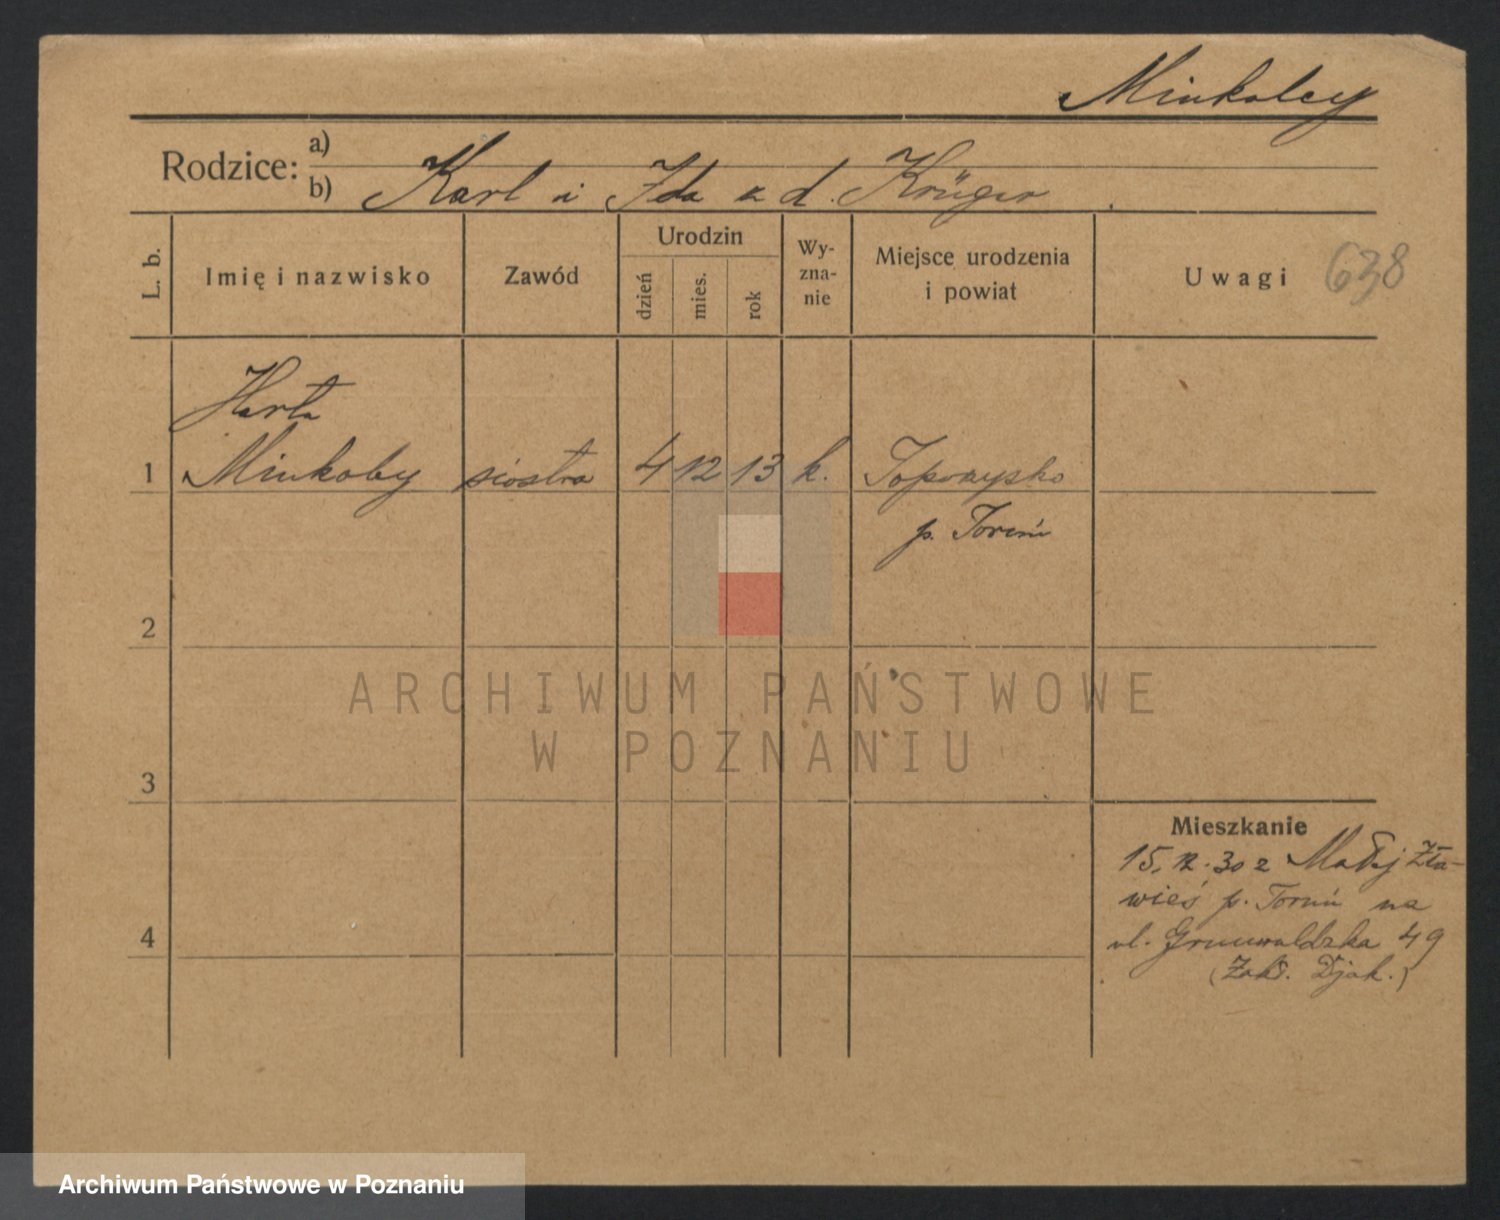 Minkoley
Rodzice:
a)
b) Karl i Ida z d. Krüger
L. b.
Imię i nazwisko
Zawód
Urodzin
dzień
mies.
rok
Wy-
zna-
nie
Miejsce urodzenia
i powiat
Uwagi
638
Harta
1 Minkoley siostra 4 12 13 k. Toporzysko
p. Toruń
2
3
4
Mieszkanie
15.12.30 z Małej Zła-
wieś p. Toruń na
ul. Grunwaldzka 49
(Zakł. Djak.)
ARCHIWUM PAŃSTWOWE
W POZNANIU
Archiwum Państwowe w Poznaniu